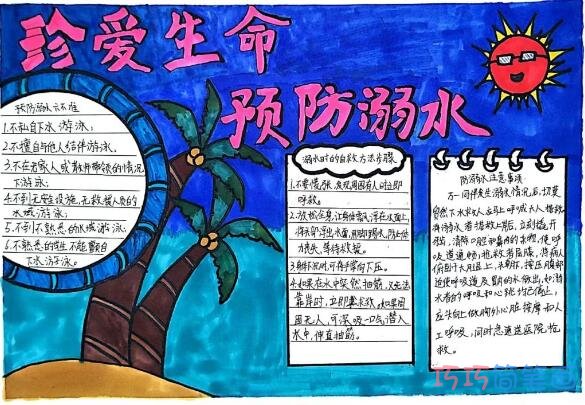 珍爱生命
预防溺水
预防溺水六不准
1.不私自下水游泳;
2.不擅自与他人结伴游泳;
3.不在无家人或教师带领的情况
下游泳;
4.不到无安全设施,无救援人员的
水域游泳;
5.不到不熟悉的水域游泳;
6.不熟悉的学生不能擅自
下水游泳。
溺水时的自救方法步骤
1.不要慌张,发现周围有人时立即
呼救。
2.放松全身,让身体飘浮在水面上,
将头部浮出水面,用脚踢水,防止体
力丧失,等待救援。
3.身体下沉时,可将手掌向下压。
4.如果在水中突然抽筋,又无法
靠岸时,立即求救。如果周
围无人,可深吸一口气,潜入
水中,伸直抽筋
防溺水注意事项
万一同伴发生溺水情况后,切莫
冒然下水救人,应马上呼叫成人援救。
将溺水者救上岸后,立刻撬开
口腔,清除口腔和鼻内的
吸道通畅,
俯卧于
迫使呼吸道及胃内的水倒出,如溺
水者的呼吸和心跳均已停止,
应马上做胸外心脏按摩和人
工呼吸,同时急速送医院抢
救。
巧巧简笔画